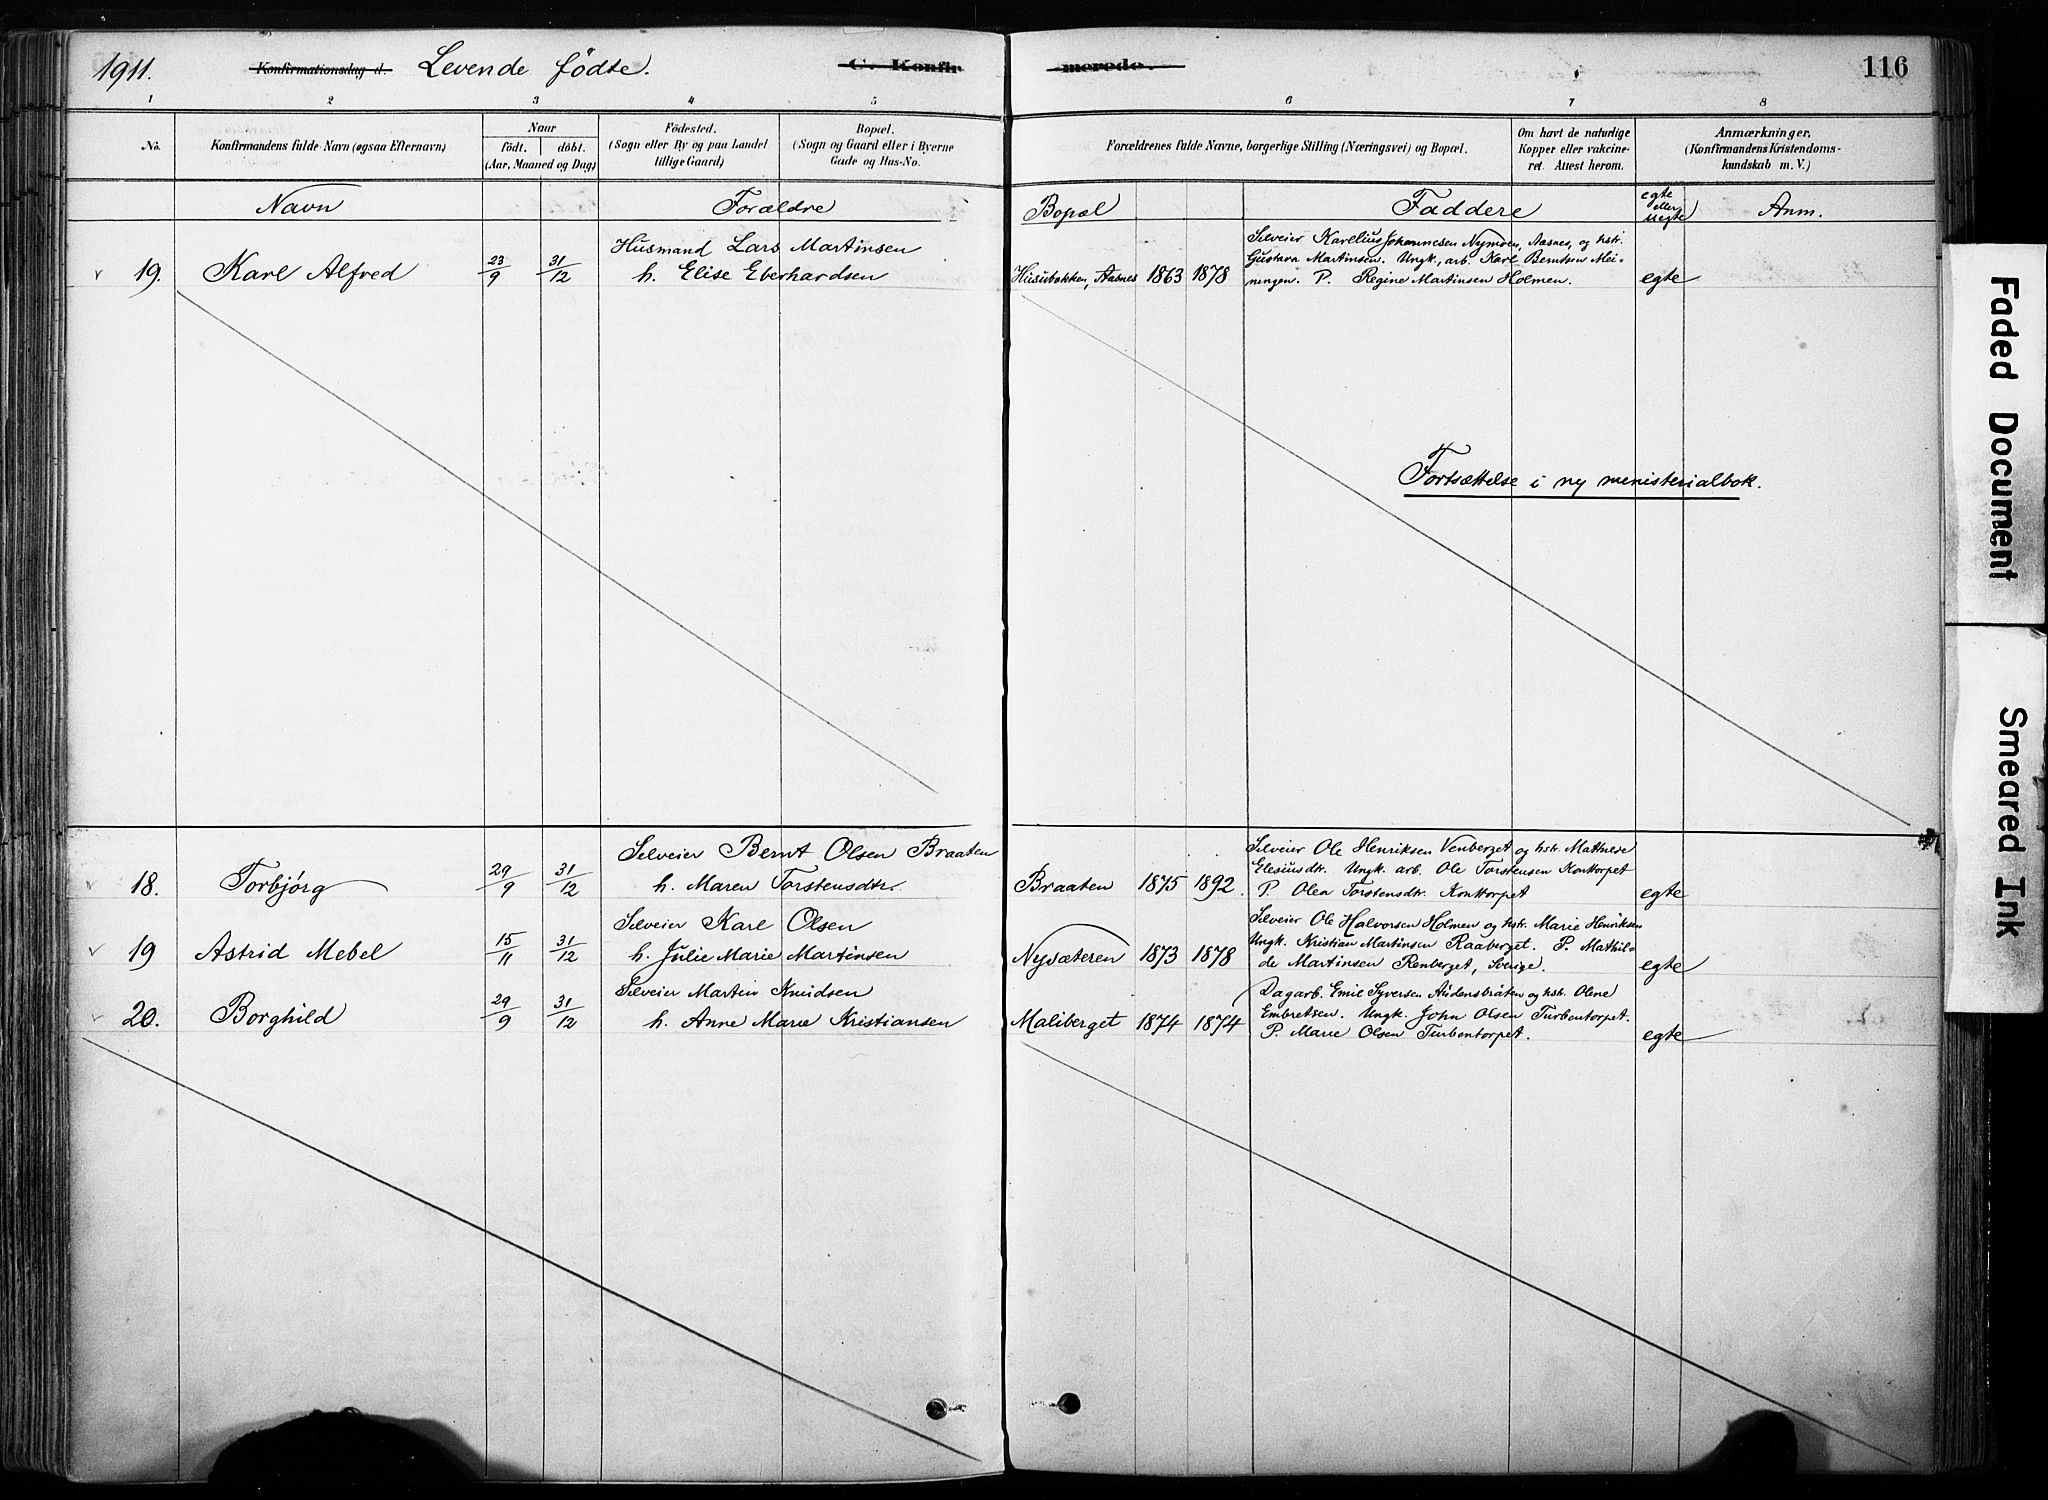 1911. Konfirmationsdag d. Levende fødte. C. Konfir merede. 116
1 2 3 4 5 6 7 8
No. Konfirmandens fulde Navn (ogsaa Efternavn) Naar født. døbt. (Aar, Maaned og Dag) Fødested. (Sogn eller By og paa Landet tillige Gaard) Bopæl. (Sogn og Gaard eller i Byerne Gade og Hus-No. Forældrenes fulde Navne, borgerlige Stilling (Næringsvei) og Bopæl. Om havt de naturlige Kopper eller vakcineret. Attest herom. Anmærkninger, (Konfirmandens Kristendomskundskab m. V.)
Navn Forældre Bopæl Faddere egte eller uegte Anm.
Husmand Lars Martinsen Selveier Karelius Johannesen Nymoen, Aasnes, og hstr.
Gustava Martinsen. Ungk., arb. Karl Berntsen Mei-
v 19. Karl Alfred 23/9 31/12 h. Elise Eberhardsen Husubakken, Aasnes 1863 1878 ningen. P. Regine Martinsen Holmen. egte
Fortsættelse i ny ministerialbok.
Selveier Bernt Olsen Braaten Selveier Ole Henriksen Venberget og hstr. Mathilde
Elesiusdtr. Ungk. arb. Ole Torstensen Konttorpet
v 18. Torbjørg 29/9 31/12 h. Maren Torstensdtr. Braaten 1875 1892. P. Olea Torstensdtr. Konttorpet egte
Selveier Karl Olsen Selveier Ole Halvorsen Holmen og hstr. Marie Henriksen
Ungk. Kristian Martinsen Raaberget. P. Mathil-
v 19 Astrid Mebel 15/11 31/12 h. Julie Marie Martinsen Nysæteren 1873 1878 de Martinsen Renberget, Sverige. egte
Selveier Martin Knudsen Dagarb. Emil Syversen Audensbråten og hstr. Oline
Embretsen. Ungk. John Olsen Turbentorpet.
v 20. Borghild 29/9 31/12 h. Anne Marie Kristiansen Maliberget 1874 1874 P. Marie Olsen Turbentorpet. egte
Faded Document
Smeared Ink